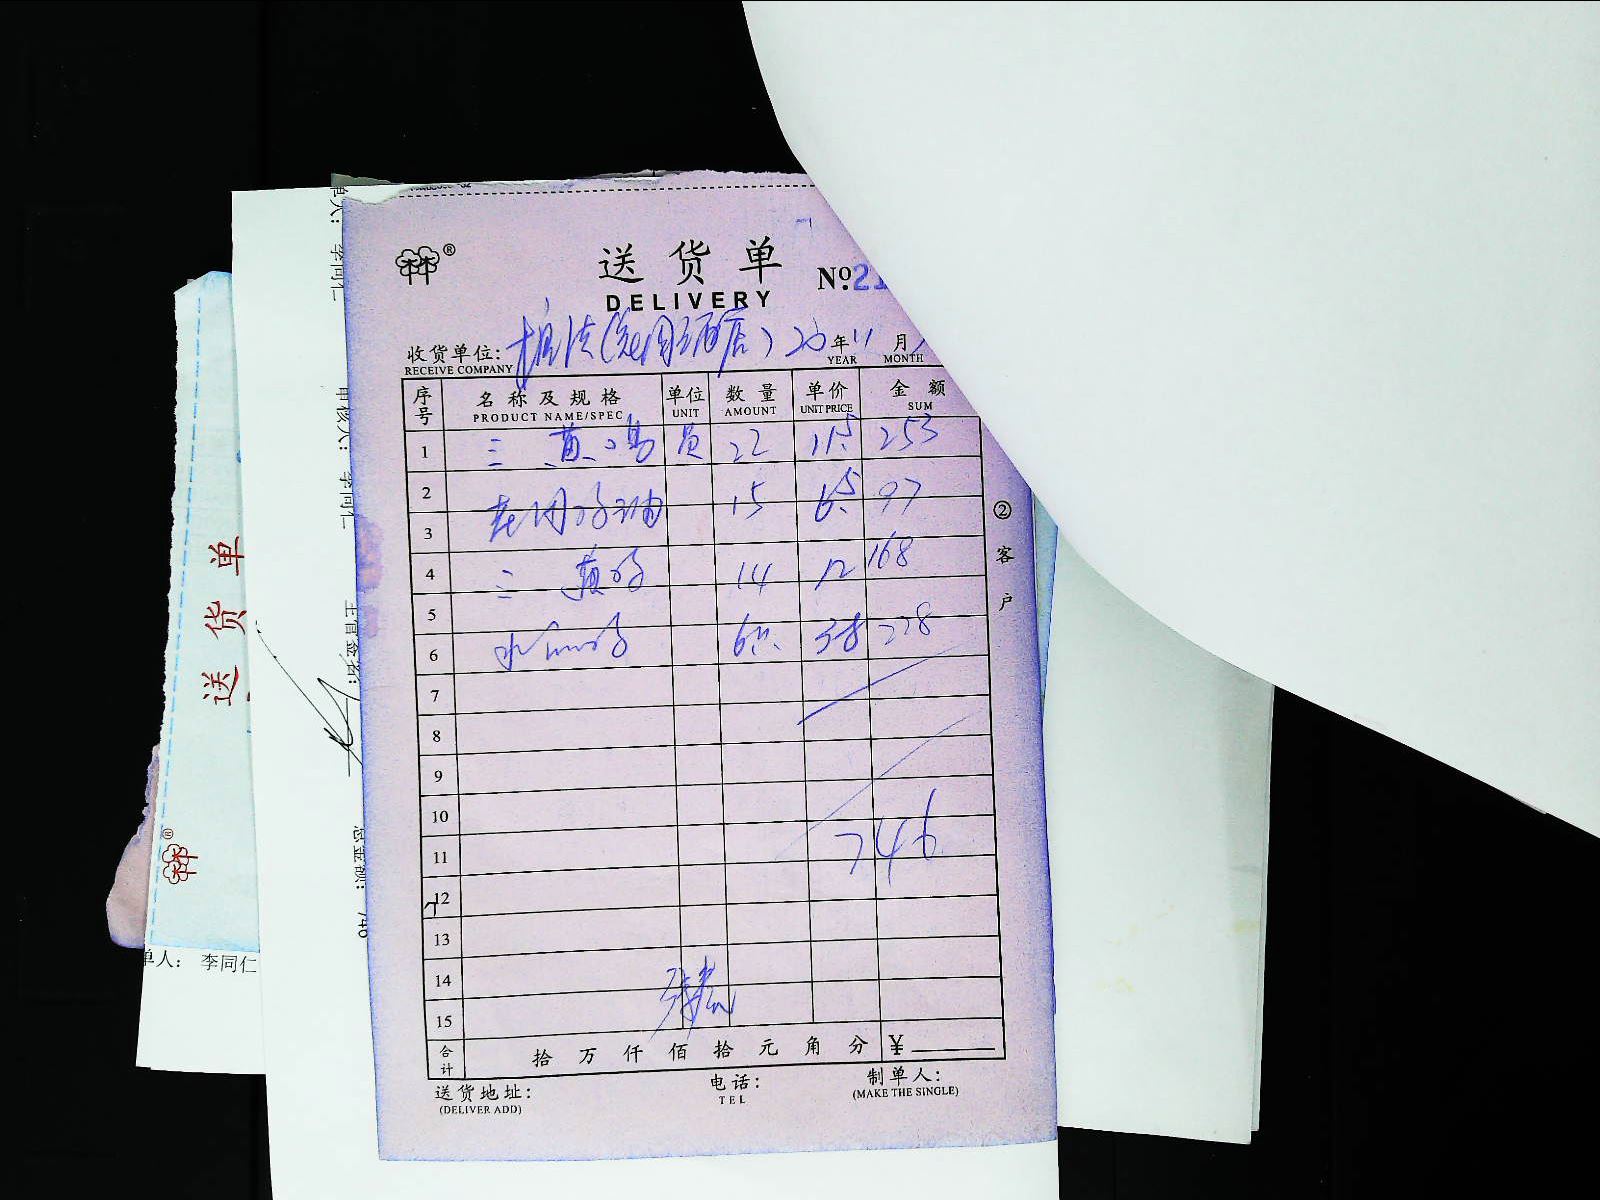 送货单
DELIVERY
№.21
收货单位: 20年11月
RECEIVE COMPANY YEAR MONTH
序号 名称及规格 单位 数量 单价 金额
PRODUCT NAME/SPEC UNIT AMOUNT UNIT PRICE SUM
1 三黄鸡 22 11.5 253
2
3 15 6.5 97
4 三黄鸡 14 12 168
5
6 6 38 228
7
8
9
10
11 746
12
13
14
15
合计 拾万仟佰拾元角分 ¥
送货地址: 电话: 制单人:
(DELIVER ADD) TEL (MAKE THE SINGLE)
②客户
单人: 李同仁
审核人: 李同仁
主管签名:
总金额: 746
送货单
单人: 李同仁